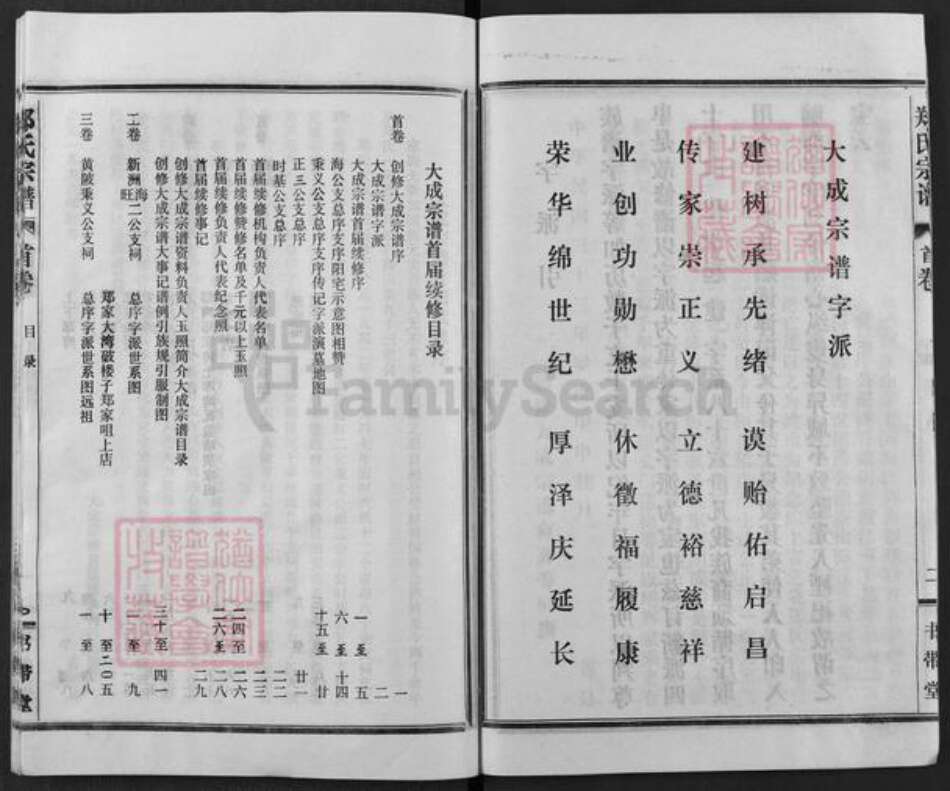 郑氏宗谱
首卷
二
书带堂
大成宗谱字派
建树承先绪 谟贻佑启昌
传家崇正义 立德裕慈祥
业创功勋懋 休徵福履康
荣华绵世纪 厚泽庆延长
FamilySearch
大成宗谱首届续修目录
首卷 创修大成宗谱序 一
大成宗谱字派 二
大成宗谱首届续修序 一至五
海公支总序支序阳宅示意图相赞 六至十四
秉义公支总序支序传记字派演墓地图 十五至廿
正三公支总序 廿一
时基公支总序 二二
首届续修机构负责人代表名单 二三
首届续修赞修名单及千元以上玉照 二四至二六
首届续修负责人代表纪念照 二六至二八
首届续修事记 二九
创修大成宗谱资料负责人玉照简介大成宗谱目录
创修大成宗谱大事记谱例引族规引服制图 三十至四一
二卷 新洲海旺二公支祠 总序字派世系图 一至九
郑家大湾破楼子郑家咀上店 十至二0五
三卷 黄陂秉义公支祠 总序字派世系图远祖 一至八
郑氏宗谱
首卷
目录
书带堂